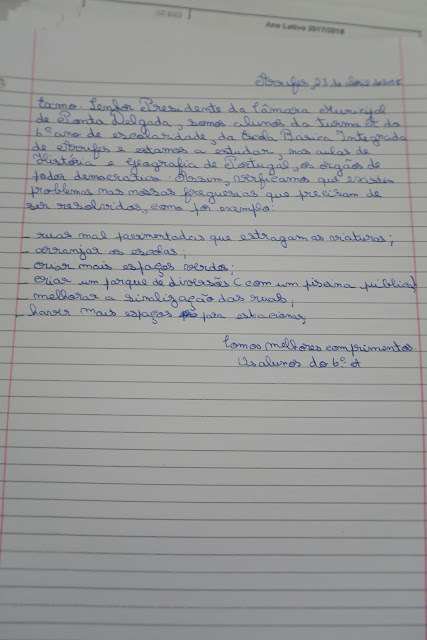 Ano Letivo 2017/2018
Arrifes, 23 de
Exmo. Senhor Presidente da Câmara Municipal
de Ponta Delgada, somos alunos da turma A do
6º ano de escolaridade, da Escola Básica Integrada
de Arrifes e estamos a estudar, nas aulas de
História e Geografia de Portugal, os órgãos de
poder democratico. Assim, verificamos que existe
problemas nas nossas freguesias que precisam de
ser resolvidos, como por exemplo:
- ruas mal pavimentadas que estragam as viaturas;
- arranjar as escolas;
- criar mais espaços verdes;
- criar um parque de diversões (com um piscina publica)
- melhorar a sinalização das ruas;
- haver mais espaços para estacionar,
Comos melhores comprimentos
Os alunos do 6º A